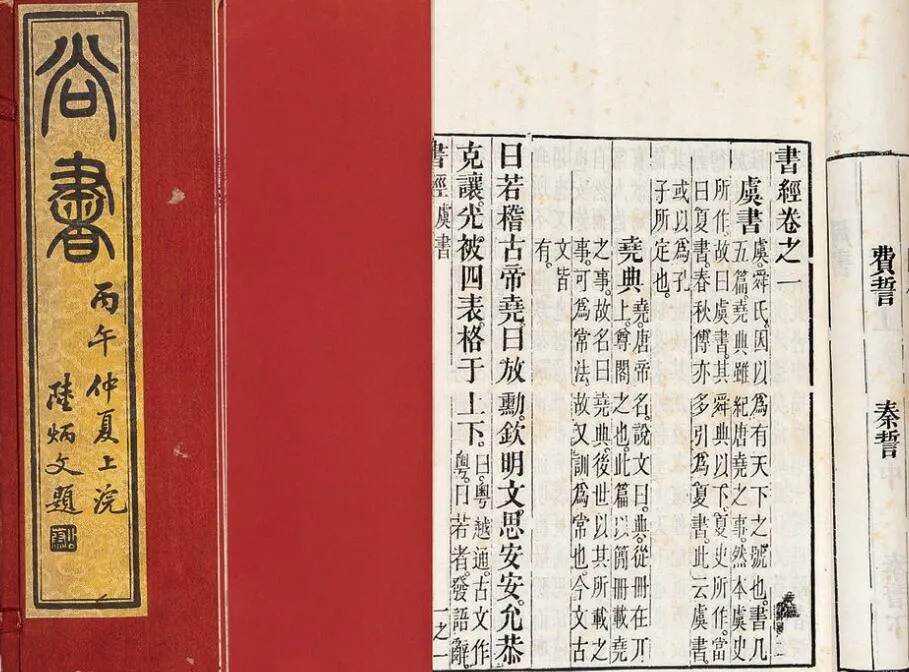 尚書
丙午仲夏上浣
陸炳文題
費誓
秦誓
書經卷之一
虞書
虞。舜氏。因以爲有天下之號也。書凡
五篇。堯典雖紀唐堯之事。然本虞史
所作。故曰虞書。其舜典以下。夏史所作。當
曰夏書。春秋傳亦多引爲夏書。此云虞書
或以爲孔
子所定也。
堯典
堯。唐帝名。說文曰。典。從冊在丌
上。尊閣之也。此篇以簡冊載堯
之事。故名曰堯典。後世以其所載之
事。可爲常法。故又訓爲常也。今文古
文皆
有。
曰若稽古帝堯。曰放勳。欽明文思安安。允恭
克讓。光被四表。格于上下。曰粵越通。古文作
粵。曰若者。發語辭。
書經 虞書 一之一